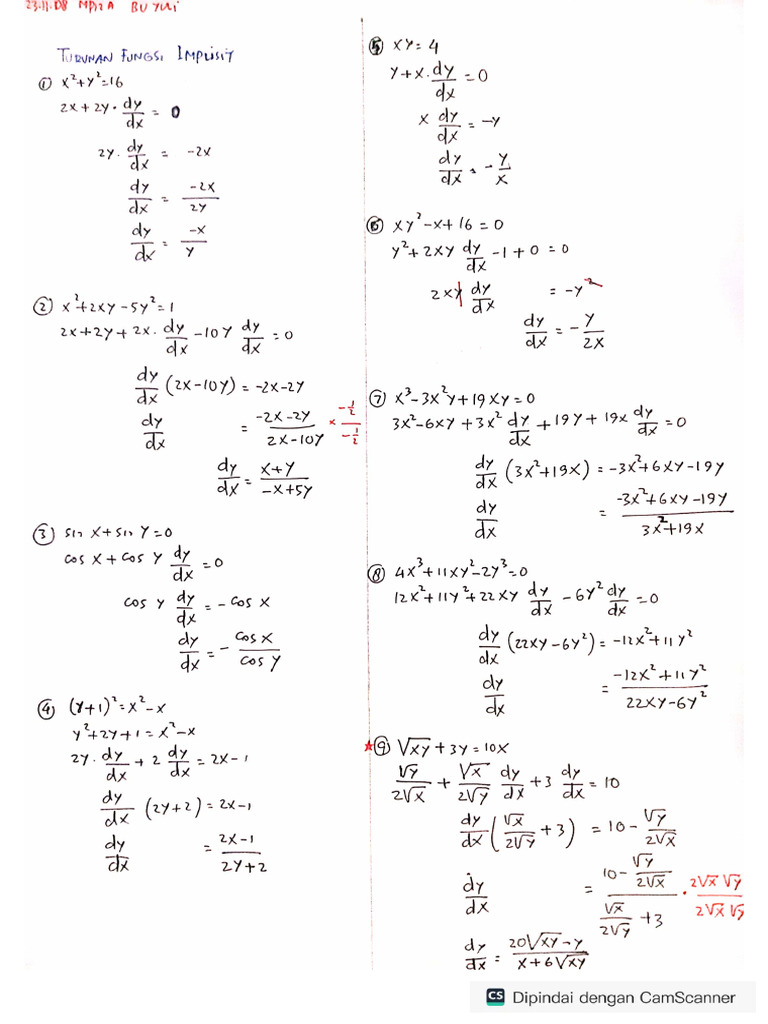 23.11.08 MPZA BU YULI
TURUNAN FUNGSI IMPLISIT
① x²+y²=16
2x+2y·dy/dx = 0
2y·dy/dx = -2x
dy/dx = -2x/2y
dy/dx = -x/y
② x²+2xy-5y²=1
2x+2y+2x·dy/dx-10y dy/dx=0
dy/dx(2x-10y)=-2x-2y
dy/dx = -2x-2y/2x-10y × -1/2/-1/2
dy/dx = x+y/-x+5y
③ sin x+sin y=0
cos x+cos y dy/dx=0
cos y dy/dx=-cos x
dy/dx=-cos x/cos y
④ (y+1)²=x²-x
y²+2y+1=x²-x
2y·dy/dx+2 dy/dx=2x-1
dy/dx (2y+2)=2x-1
dy/dx = 2x-1/2y+2
⑤ xy=4
y+x·dy/dx=0
x dy/dx=-y
dy/dx=-y/x
⑥ xy²-x+16=0
y²+2xy dy/dx-1+0=0
2xy dy/dx = -y²
dy/dx=-y/2x
⑦ x³-3x²y+19xy=0
3x²-6xy+3x² dy/dx+19y+19x dy/dx=0
dy/dx(3x²+19x)=-3x²+6xy-19y
dy/dx = -3x²+6xy-19y/3x²+19x
⑧ 4x³+11xy²-2y³=0
12x²+11y²+22xy dy/dx-6y² dy/dx=0
dy/dx(22xy-6y²)=-12x²+11y²
dy/dx = -12x²+11y²/22xy-6y²
★⑨ √xy+3y=10x
√y/2√x+√x/2√y dy/dx+3 dy/dx=10
dy/dx(√x/2√y+3) =10-√y/2√x
dy/dx = 10-√y/2√x/√x/2√y+3 · 2√x√y/2√x√y
dy/dx=20√xy-y/x+6√xy
CS Dipindai dengan CamScanner